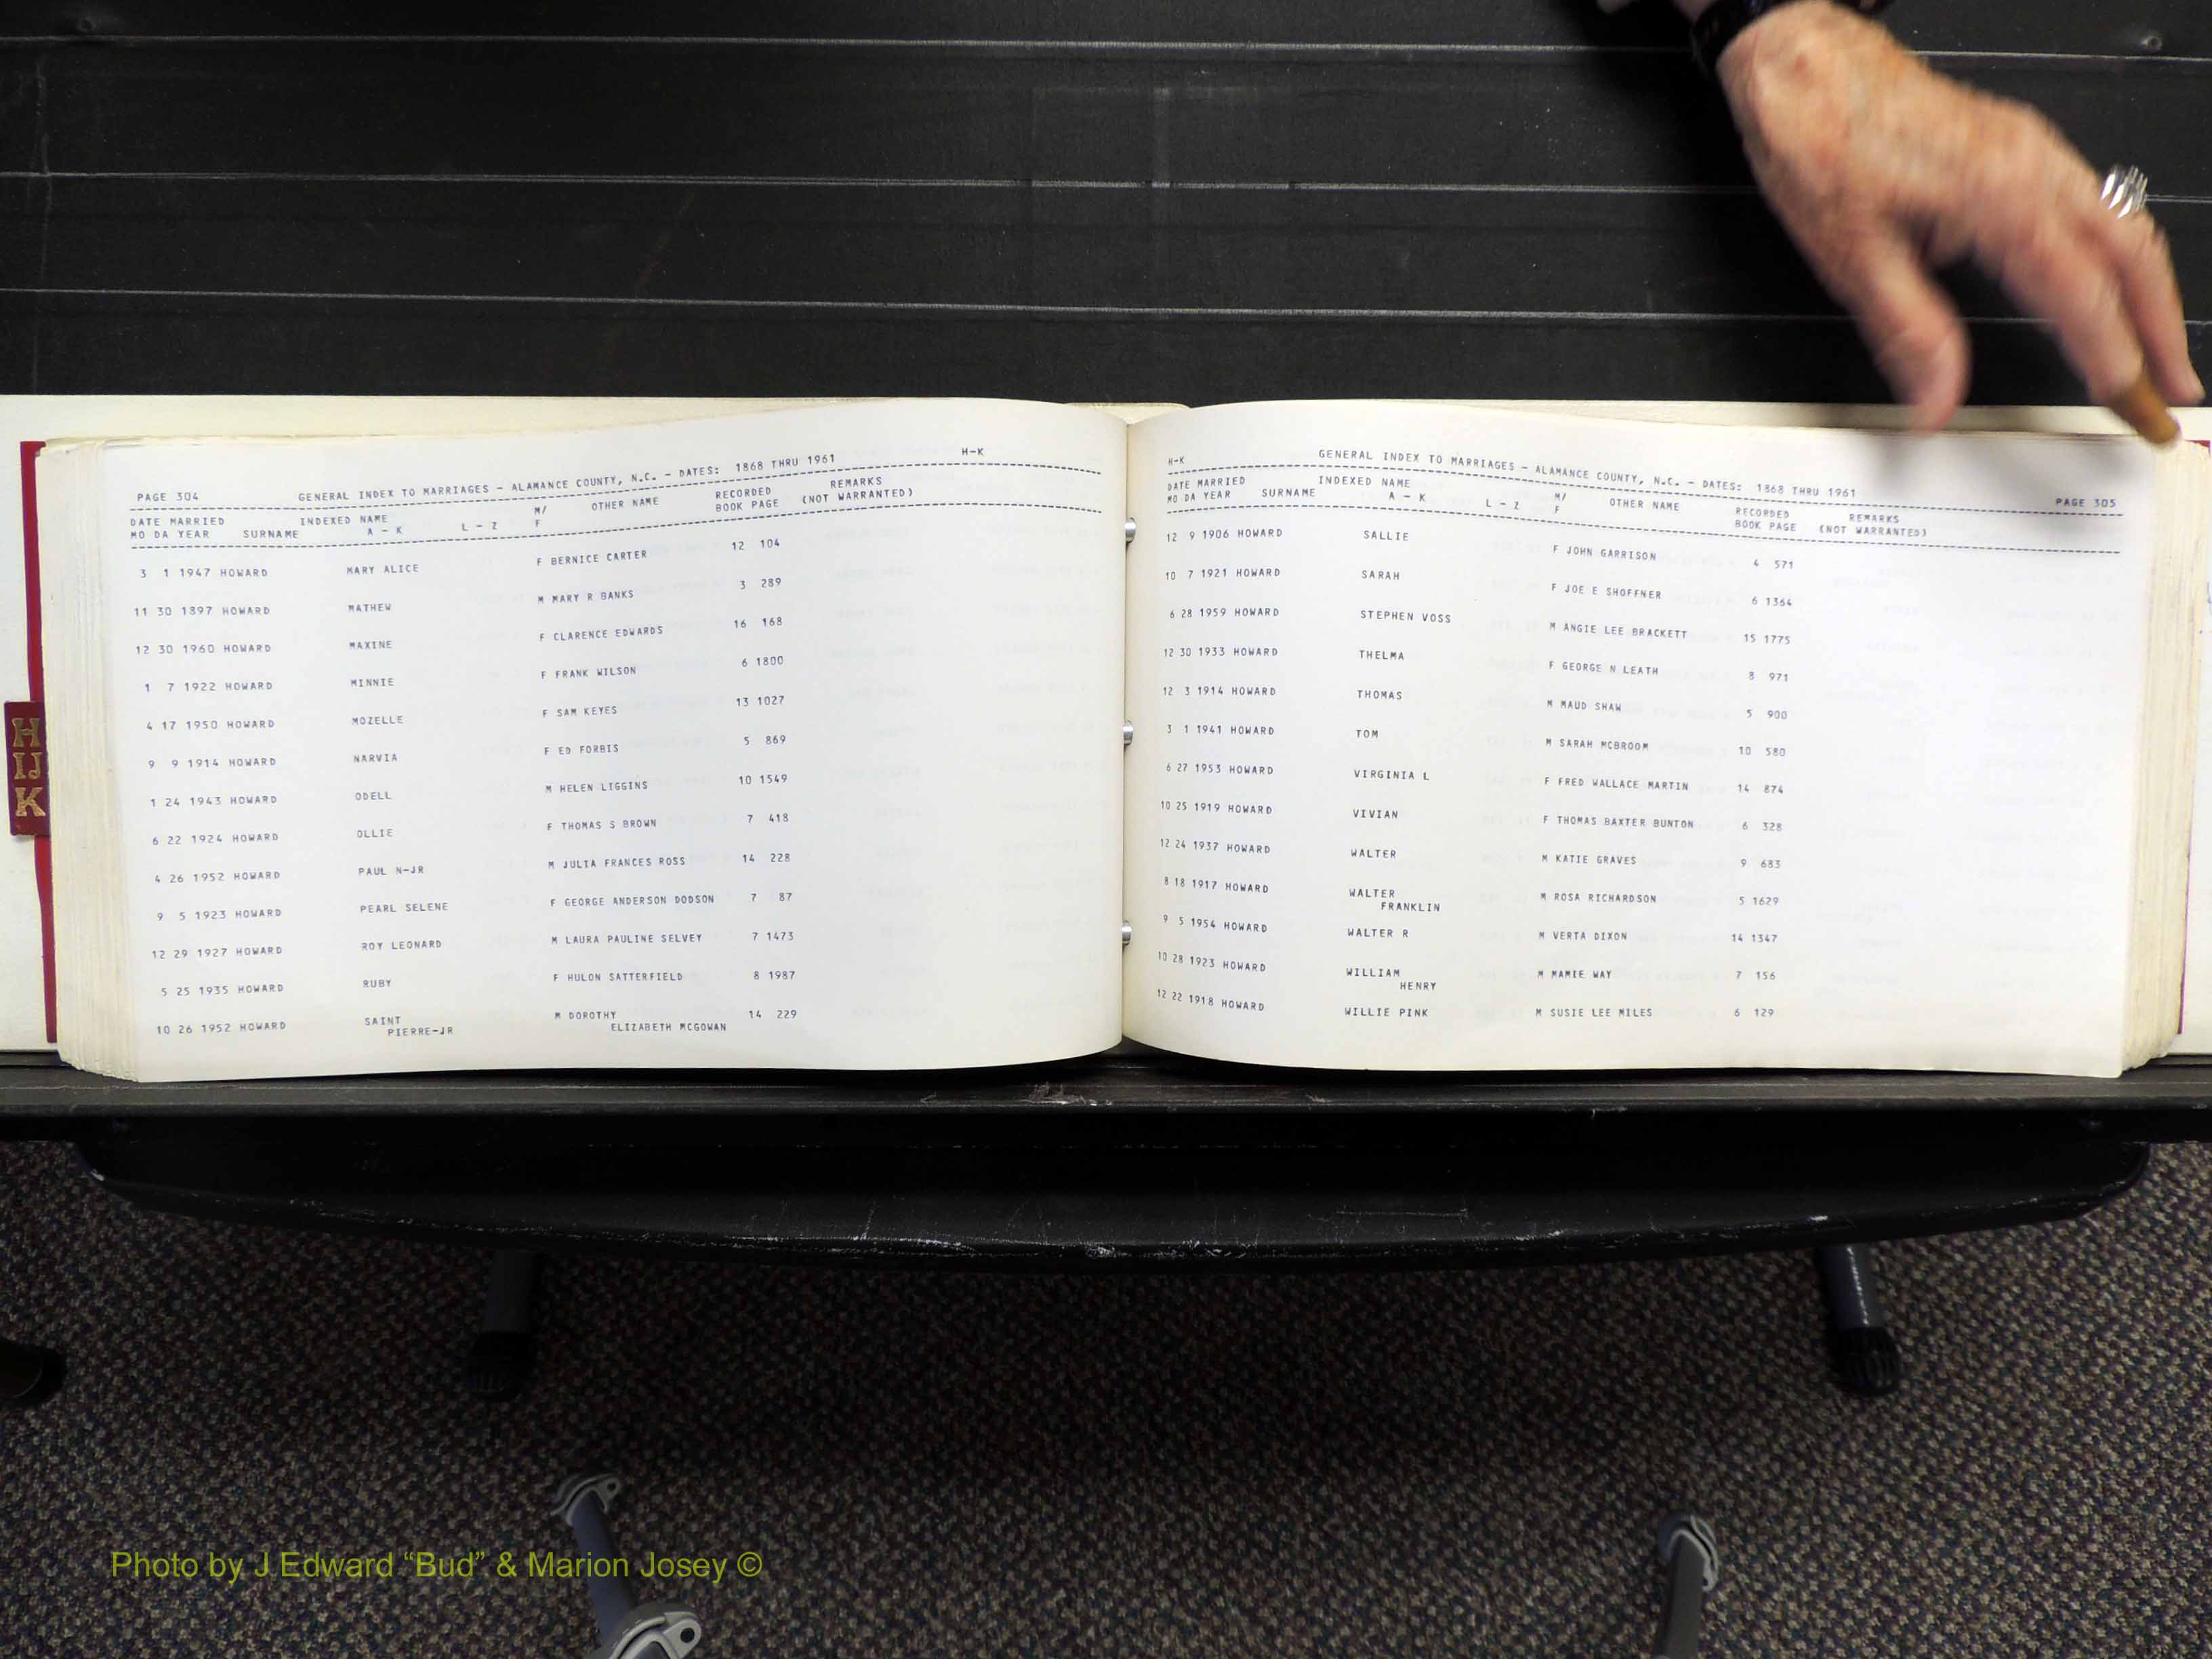 H
IJ
K
PAGE 304 GENERAL INDEX TO MARRIAGES - ALAMANCE COUNTY, N.C. - DATES: 1868 THRU 1961 H-K
DATE MARRIED INDEXED NAME M/ OTHER NAME RECORDED REMARKS
MO DA YEAR SURNAME A - K L - Z F BOOK PAGE (NOT WARRANTED)
3 1 1947 HOWARD MARY ALICE F BERNICE CARTER 12 104
11 30 1897 HOWARD MATHEW M MARY R BANKS 3 289
12 30 1960 HOWARD MAXINE F CLARENCE EDWARDS 16 168
1 7 1922 HOWARD MINNIE F FRANK WILSON 6 1800
4 17 1950 HOWARD MOZELLE F SAM KEYES 13 1027
9 9 1914 HOWARD NARVIA F ED FORBIS 5 869
1 24 1943 HOWARD ODELL M HELEN LIGGINS 10 1549
6 22 1924 HOWARD OLLIE F THOMAS S BROWN 7 418
4 26 1952 HOWARD PAUL N-JR M JULIA FRANCES ROSS 14 228
9 5 1923 HOWARD PEARL SELENE F GEORGE ANDERSON DODSON 7 87
12 29 1927 HOWARD ROY LEONARD M LAURA PAULINE SELVEY 7 1473
5 25 1935 HOWARD RUBY F HULON SATTERFIELD 8 1987
10 26 1952 HOWARD SAINT M DOROTHY 14 229
PIERRE-JR ELIZABETH MCGOWAN
H-K GENERAL INDEX TO MARRIAGES - ALAMANCE COUNTY, N.C. - DATES: 1868 THRU 1961 PAGE 305
DATE MARRIED INDEXED NAME M/ OTHER NAME RECORDED REMARKS
MO DA YEAR SURNAME A - K L - Z F BOOK PAGE (NOT WARRANTED)
12 9 1906 HOWARD SALLIE F JOHN GARRISON 4 571
10 7 1921 HOWARD SARAH F JOE E SHOFFNER 6 1364
6 28 1959 HOWARD STEPHEN VOSS M ANGIE LEE BRACKETT 15 1775
12 30 1933 HOWARD THELMA F GEORGE N LEATH 8 971
12 3 1914 HOWARD THOMAS M MAUD SHAW 5 900
3 1 1941 HOWARD TOM M SARAH MCBROOM 10 580
6 27 1953 HOWARD VIRGINIA L F FRED WALLACE MARTIN 14 874
10 25 1919 HOWARD VIVIAN F THOMAS BAXTER BUNTON 6 328
12 24 1937 HOWARD WALTER M KATIE GRAVES 9 683
8 18 1917 HOWARD WALTER M ROSA RICHARDSON 5 1629
FRANKLIN
9 5 1954 HOWARD WALTER R M VERTA DIXON 14 1347
10 28 1923 HOWARD WILLIAM M MAMIE WAY 7 156
HENRY
12 22 1918 HOWARD WILLIE PINK M SUSIE LEE MILES 6 129
Photo by J Edward “Bud” & Marion Josey ©